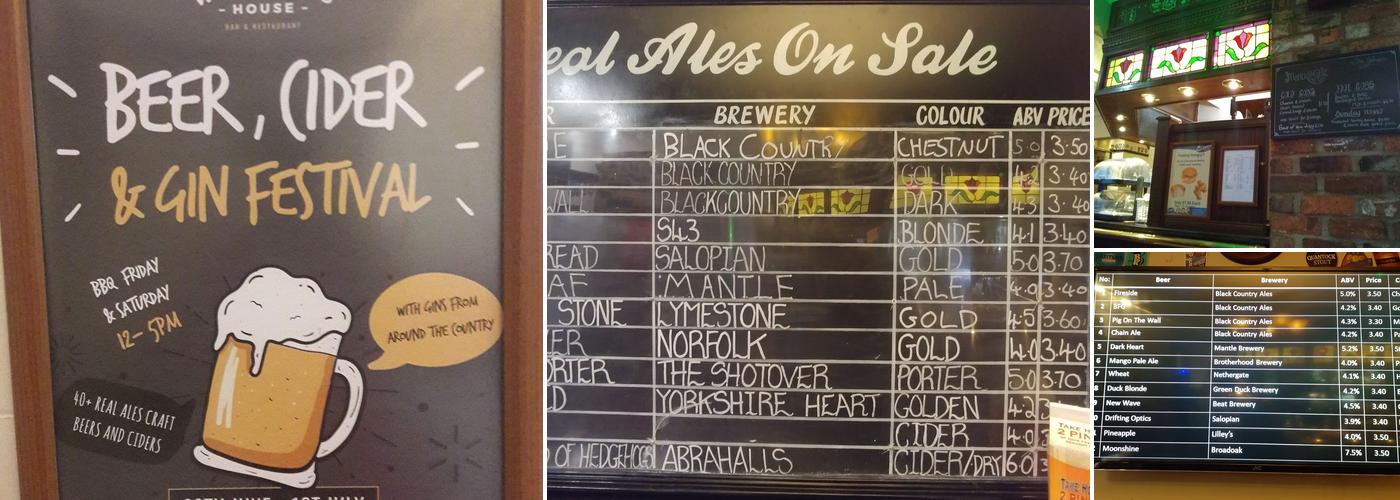 - HOUSE -
BAR & RESTAURANT
BEER, CIDER
& GIN FESTIVAL
BBQ FRIDAY
& SATURDAY
12- 5PM
WITH GINS FROM
AROUND THE COUNTRY
40+ REAL ALES CRAFT
BEERS AND CIDERS
Ales On Sale
BREWERY COLOUR ABV PRICE
BLACK COUNTRY CHESTNUT 5.0 3.50
BLACK COUNTRY GOLD 4.2 3.40
BLACKCOUNTRY DARK 4.3 3.40
SH3 BLONDE 4.1 3.40
SALOPIAN GOLD 5.0 3.70
MANTLE PALE 4.0 3.40
STONE LYMESTONE GOLD 4.5 3.60
NORFOLK GOLD 4.0 3.40
THE SHOTOVER PORTER 5.0 3.70
YORKSHIRE HEART GOLDEN 4.2
CIDER 4.0
OF HEDGEHOGS ABRAHALLS CIDER/DRY 6.0
TAKE
2 PIN
Menu
Sunday
QUANTOCK
STOUT
No: Beer Brewery ABV Price
Fireside Black Country Ales 5.0% 3.50
2 BFG Black Country Ales 4.2% 3.40
3 Pig On The Wall Black Country Ales 4.3% 3.30
4 Chain Ale Black Country Ales 4.2% 3.40
5 Dark Heart Mantle Brewery 5.2% 3.50
6 Mango Pale Ale Brotherhood Brewery 4.0% 3.40
7 Wheat Nethergate 4.1% 3.40
8 Duck Blonde Green Duck Brewery 4.2% 3.40
9 New Wave Beat Brewery 4.5% 3.40
Drifting Optics Salopian 3.9% 3.40
Pineapple Lilley's 4.0% 3.50
Moonshine Broadoak 7.5% 3.50
JVC